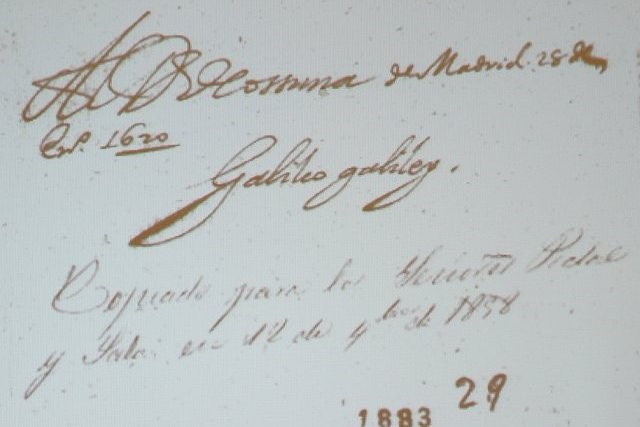 Al D. de Ossuna de Madrid 28 de
En.º 1620
Galileo galiley.
Copiado para los Señores Pidal
y Salvá en 12 de 9bre de 1858
29
1883